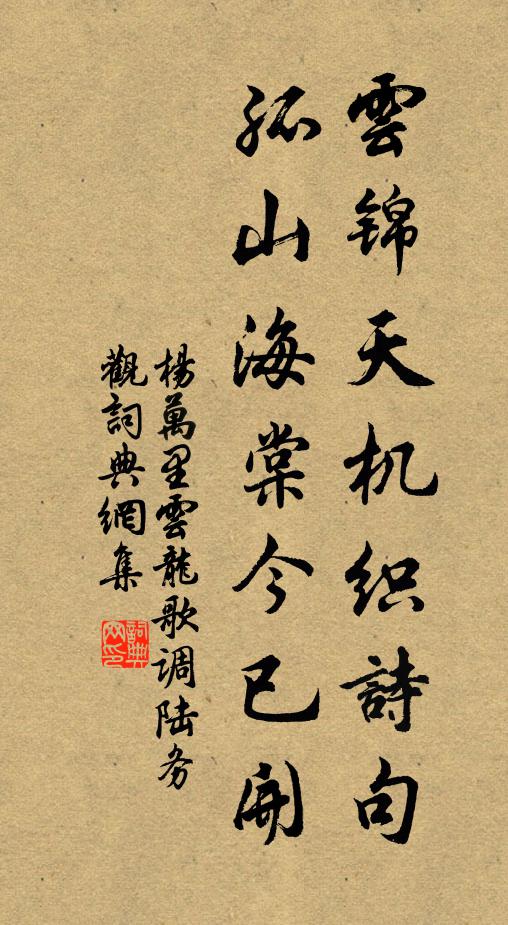 雲锦天机织詩句
孤山海棠今已開
楊萬里雲龍歌调陆务
觀詞典網集
詞典
网印